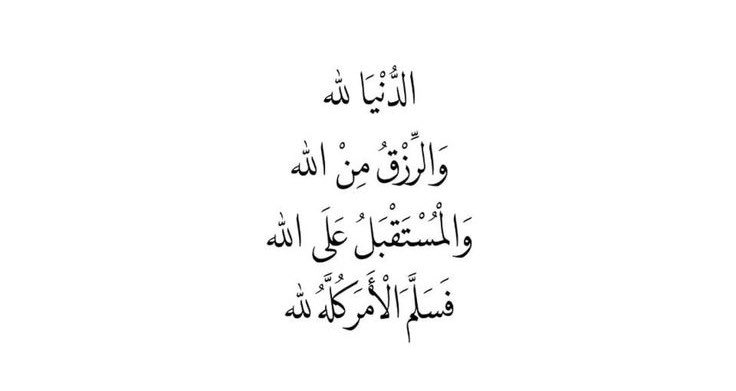 الدُّنْيَا لله
وَالرِّزْقُ مِنْ الله
وَالْمُسْتَقْبَلُ عَلَى الله
فَسَلَّمَ الْأَمَرَ كُلَّهُ لله